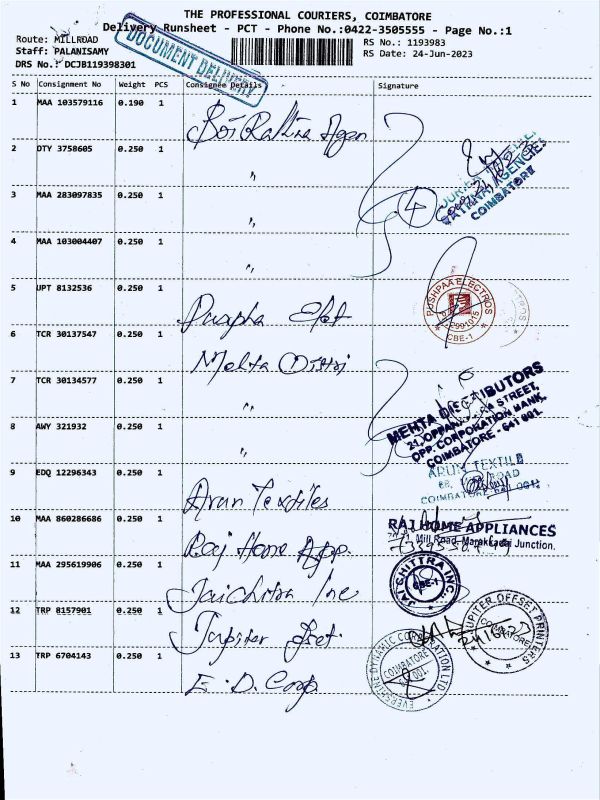 THE PROFESSIONAL COURIERS, COIMBATORE
Delivery Runsheet - PCT - Phone No.:0422-3505555 - Page No.:1
Route: MILLROAD
RS No.: 1193983
Staff: PALANISAMY
RS Date: 24-Jun-2023
DRS No.: DCJB119398301
DOCUMENT DELIVERY
S No Consignment No Weight PCS Consignee Details Signature
1 MAA 103579116 0.190 1
2 DTY 3758605 0.250 1 "
3 MAA 283097835 0.250 1 "
4
AGENCIES
COIMBATORE
4 MAA 103004407 0.250 1 "
5 UPT 8132536 0.250 1
PUSHPAA ELECTROS
CBE-1
6 TCR 30137547 0.250 1
Mehta
7 TCR 30134577 0.250 1 "
MEHTA DISTRIBUTORS
STREET,
OPP. CORPORATION BANK,
COIMBATORE - 641 001.
8 AWY 321932 0.250 1 "
9 EDQ 12296343 0.250 1 Arun Textiles
ARUN TEXTILE
ROAD
COIMBATORE
10 MAA 860286686 0.250 1 Raj Home App.
RAJ HOME APPLIANCES
Mill Road, Marakkadai Junction.
11 MAA 295619906 0.250 1 Jaichitra Inc
JAI CHITTRA INC.
CBE-1
12 TRP 8157901 0.250 1 Jupiter
JUPITER OFFSET PRINTERS
COIMBATORE
13 TRP 6704143 0.250 1 E.D. Corp.
EVERSHINE DYNAMIC CORPORATION LTD
COIMBATORE
001.